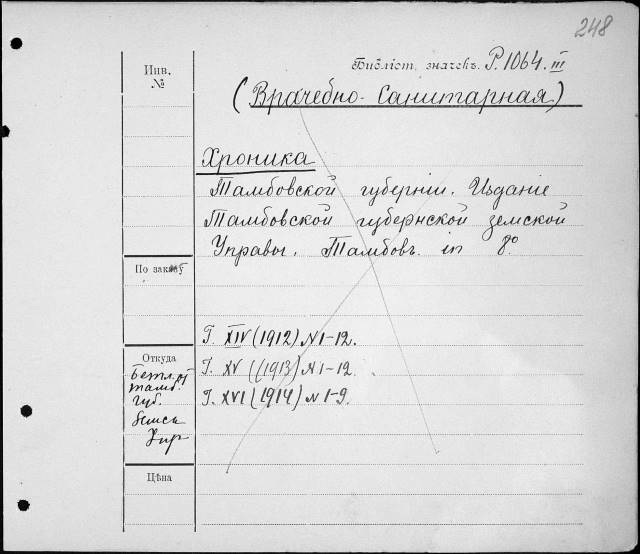 248
Библіот. значекъ. Р.1064.III
Инв. №
(Врачебно-Санитарная)
Хроника
Тамбовской губерніи. Изданіе
Тамбовской губернской земской
Управы. Тамбовъ. in 8º.
По заказу
Г. XIV (1912) N 1-12.
Г. XV ((1913) N 1-12.
Г. XVI (1914) N 1-9.
Откуда
Безпл. от
тамб.
губ.
Земск
Упр
Цѣна